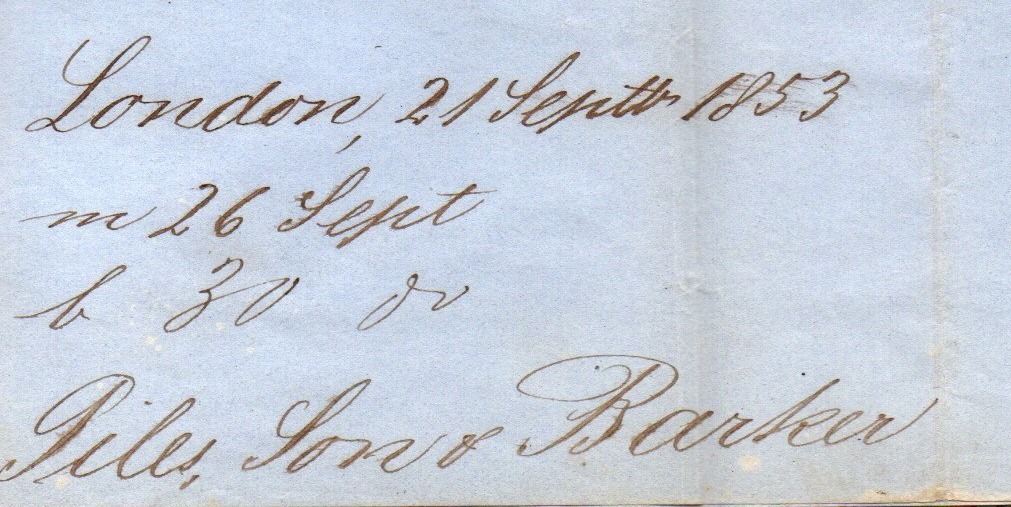 London, 21 Septbr 1853
m 26 Sept
b 30 do
Giles, Son & Barker